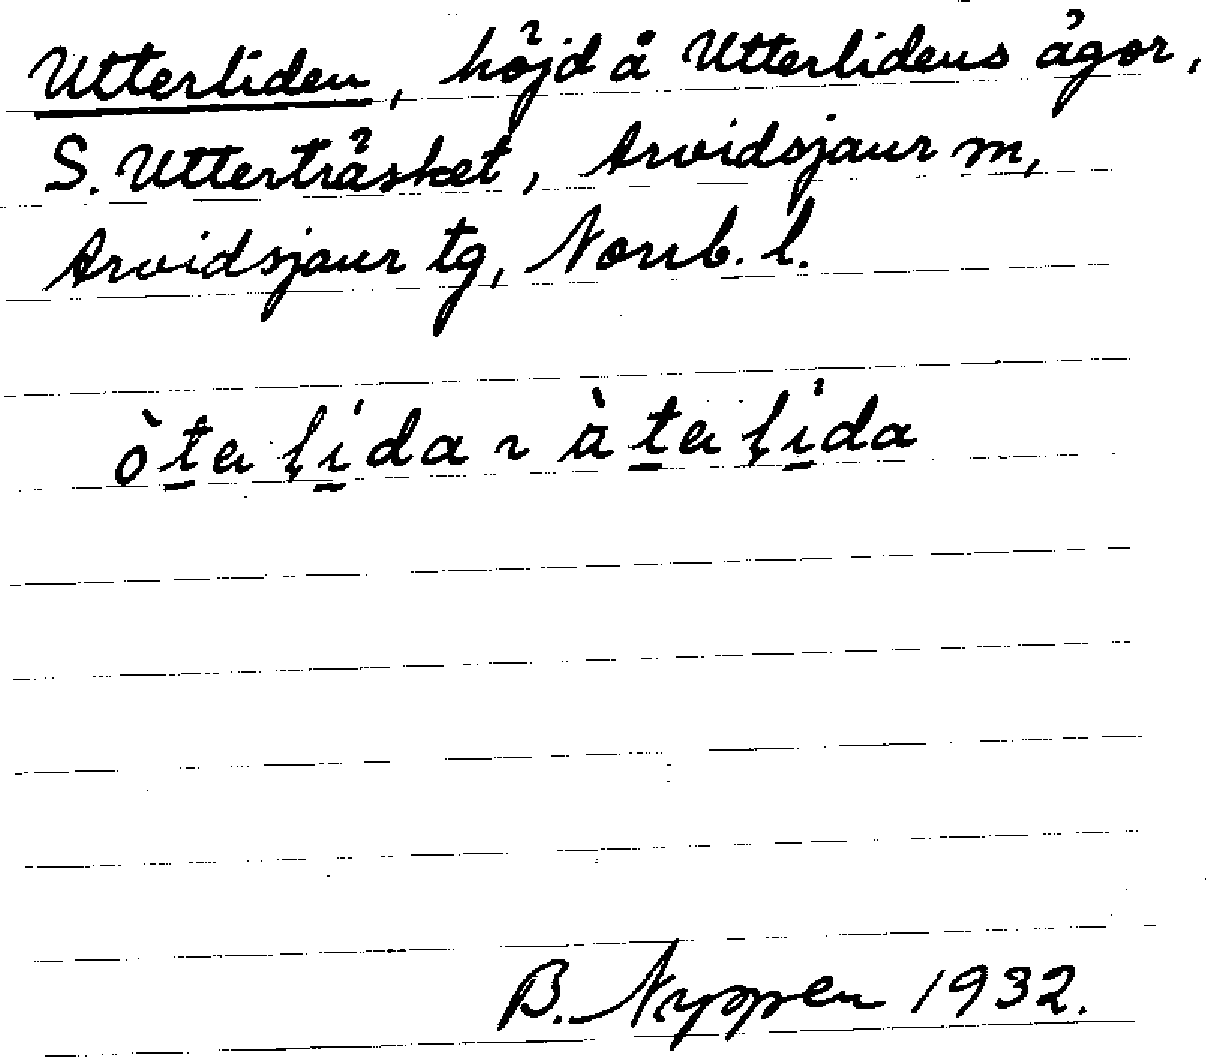 Utterliden, höjd å Utterlidens ägor,
S. Utterträsket, Arvidsjaur m,
Arvidsjaur tg, Norrb. l.
òta lída ~ àta lída
B. Nyppen 1932.